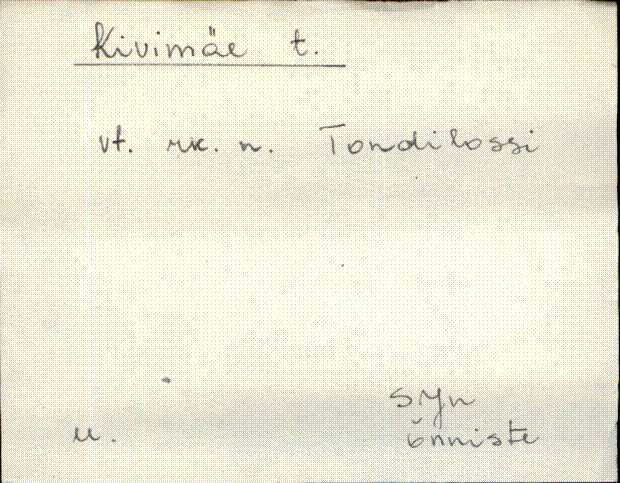 Kivimäe t.
vt. rk. n. Tondilossi
syn
u. Õnniste